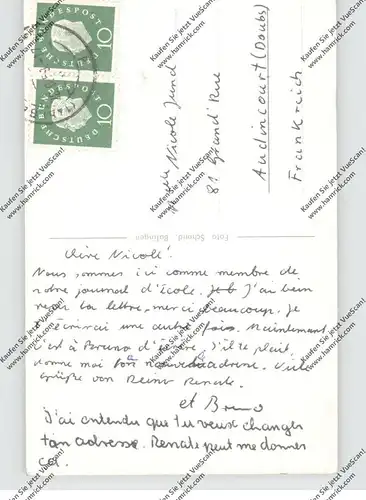 DEUTSCHE BUNDESPOST
10
DEUTSCHE BUNDESPOST
10
Nicole Jund
81 Grand'Rue
Audincourt (Doubs)
Frankreich
Foto Schmid, Balingen
Nicole!
Nous sommes ici comme membre de
notre journal d'Ecole. J'ai bien
reçu ta lettre, merci beaucoup. Je
t'écrirai une autre fois. Maintenant
c'est à Bruno d'écrire. S'il te plait,
donne moi ton adresse. Viele
Grüße von Renate.
et Bruno
J'ai entendu que tu veux changer
ton adresse. Renate peut me donner
ça.
Kaufen Sie jetzt VueScan!
www.hamrick.com